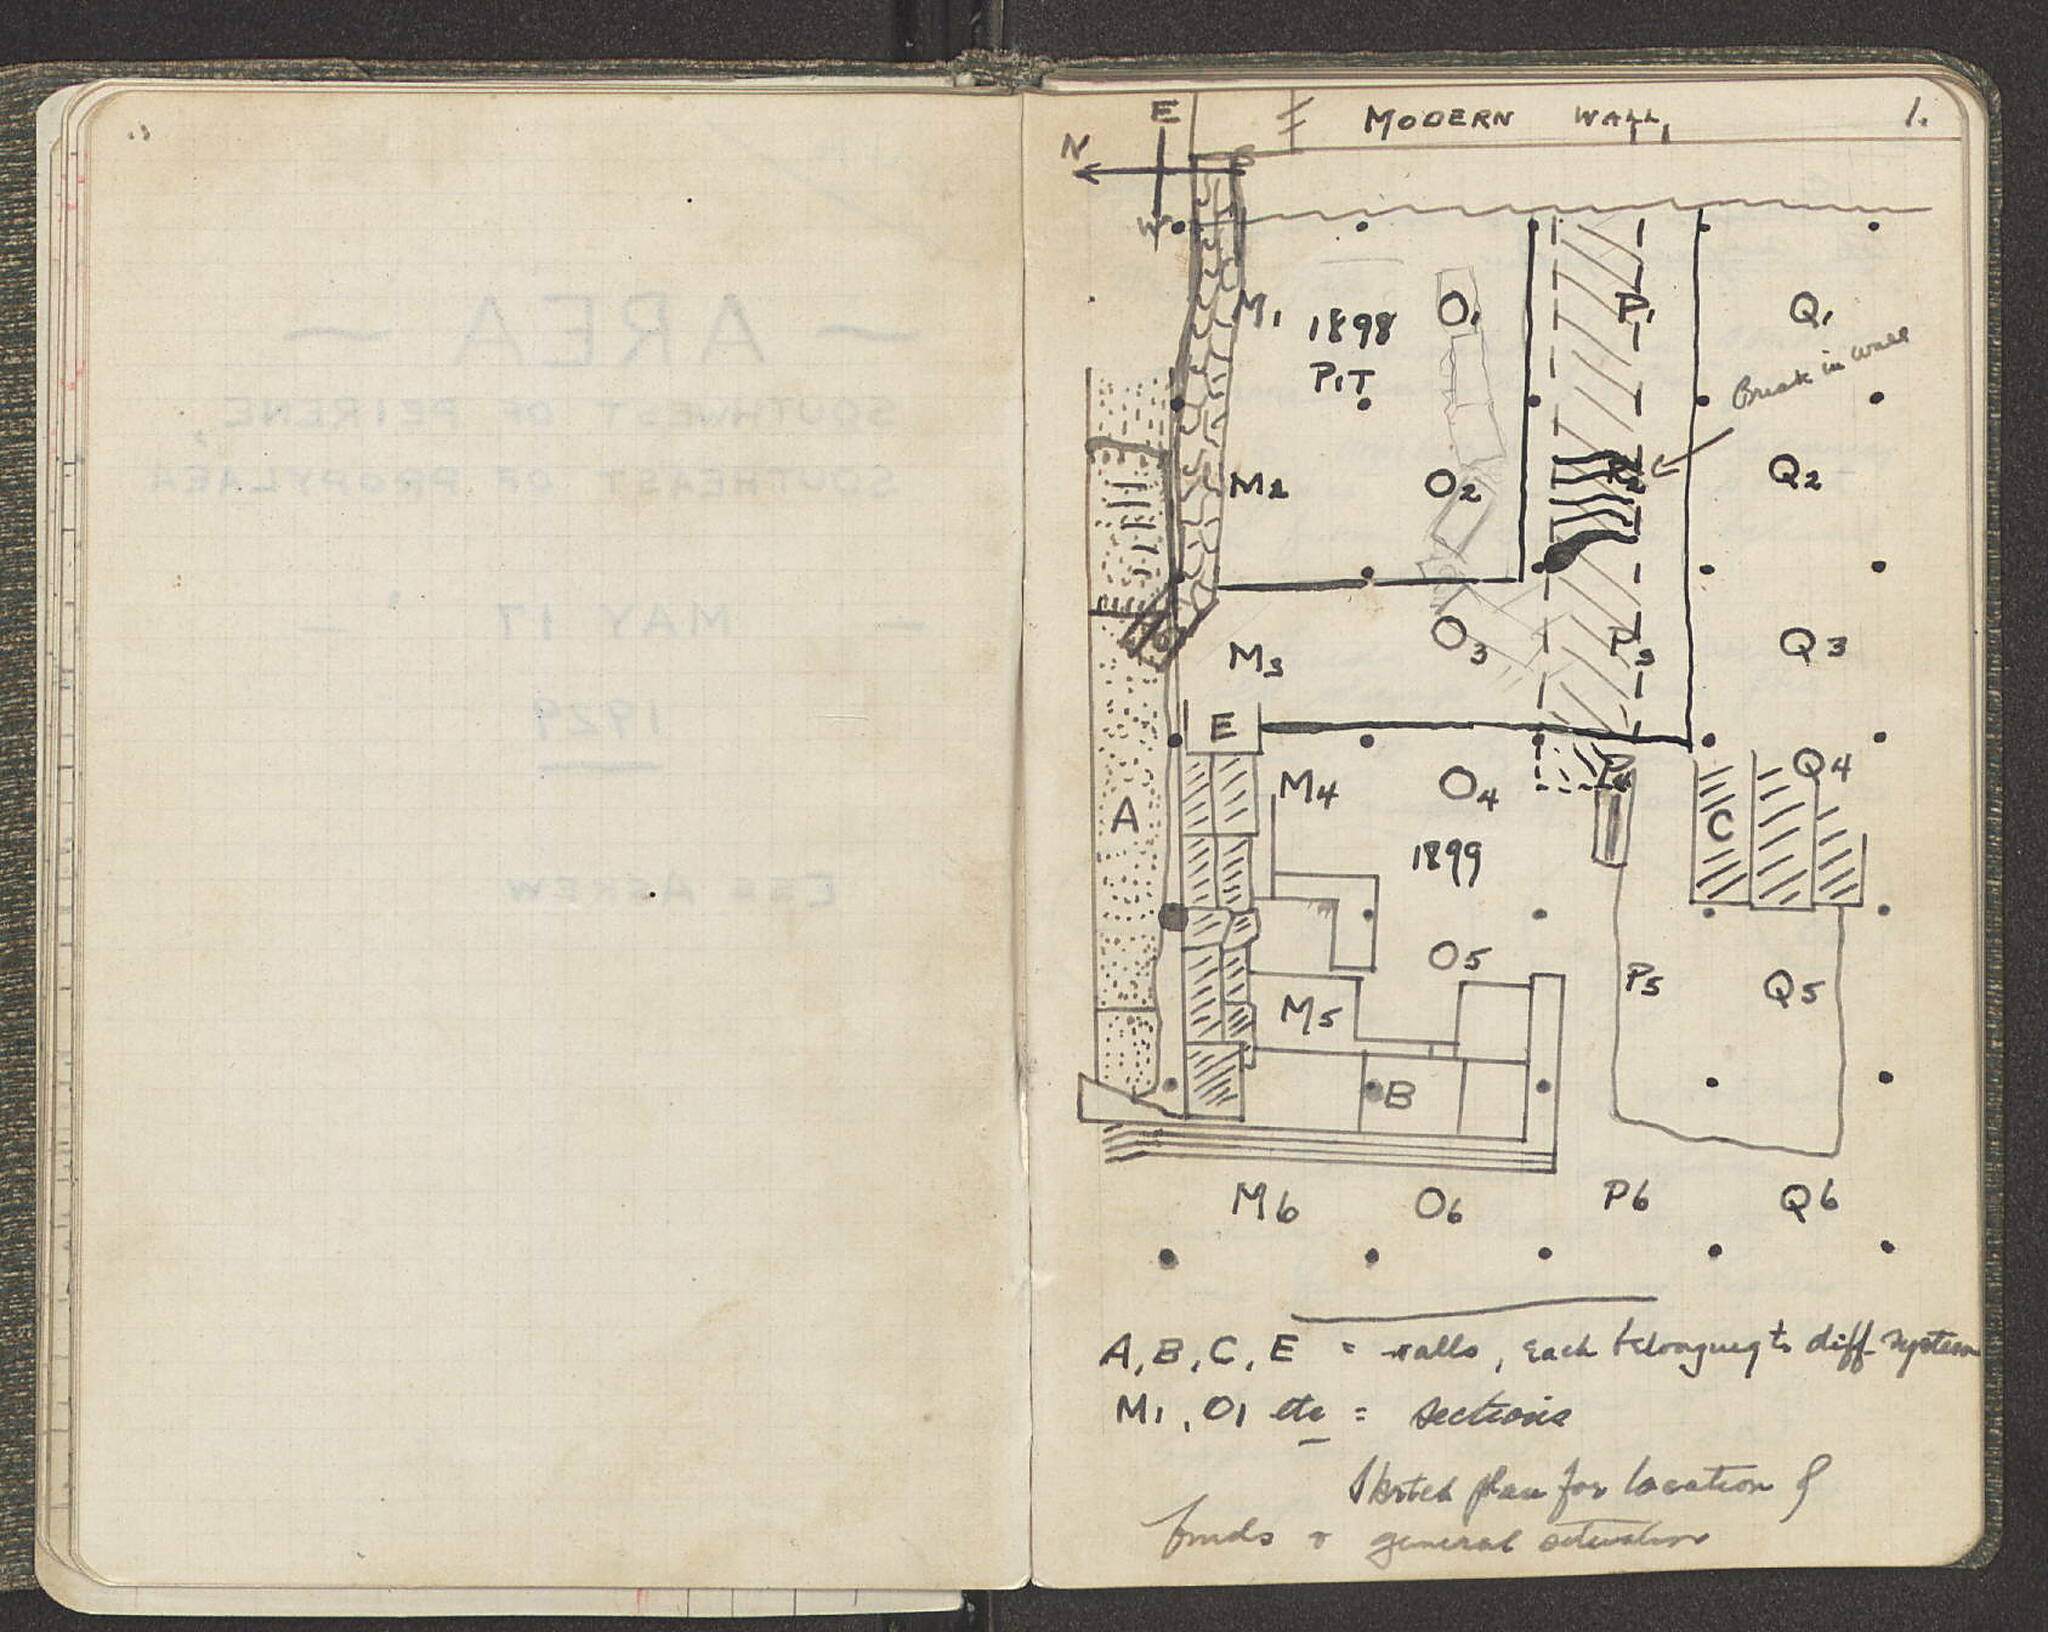 — AREA —
SOUTHWEST OF PEIRENE,
SOUTHEAST OF PROPYLAEA
— MAY 17 —
1929
ASKEW
MODERN WALL 1.
E
N
S
W
M1 1898 O1 P1 Q1
PIT
Break in wall
M2 O2 P2 Q2
M3 O3 P3 Q3
E
M4 O4 P4 Q4
A
C
1899
O5 P5 Q5
M5
B
M6 O6 P6 Q6
A, B, C, E = walls, each belonging to diff system
M1, O1 etc = sections
Sketch plan for location of
finds & general situation